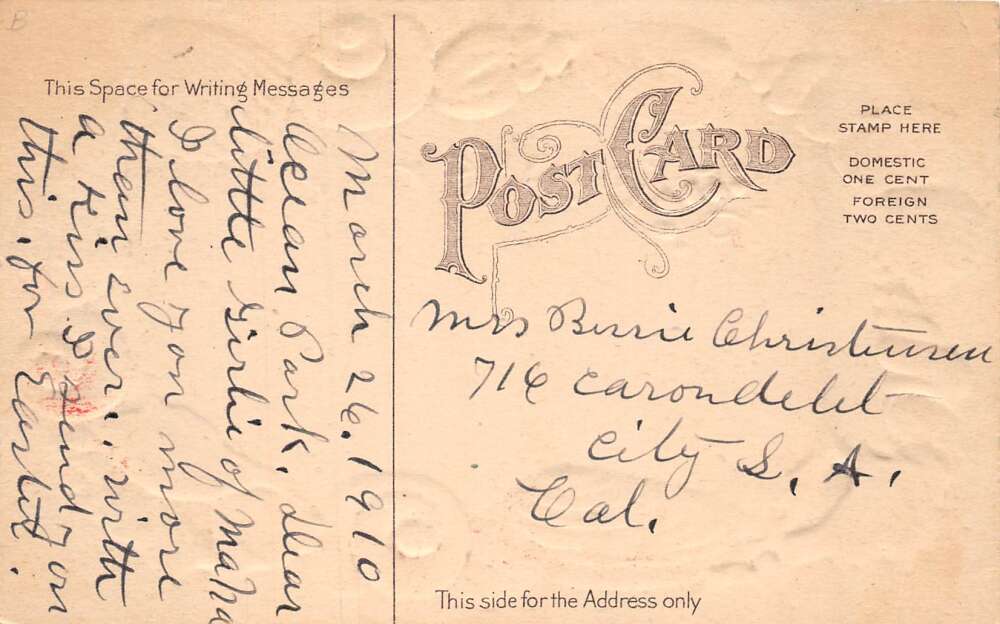 B
This Space for Writing Messages
March 26. 1910
Ocean Park. dear
little Girlie of Mama
I love you more
than ever.. with
a kiss I send you
this. for Easter.
POST CARD
PLACE
STAMP HERE
DOMESTIC
ONE CENT
FOREIGN
TWO CENTS
Mrs Bessie Christensen
716 Carondelet
City L. A.
Cal.
This side for the Address only